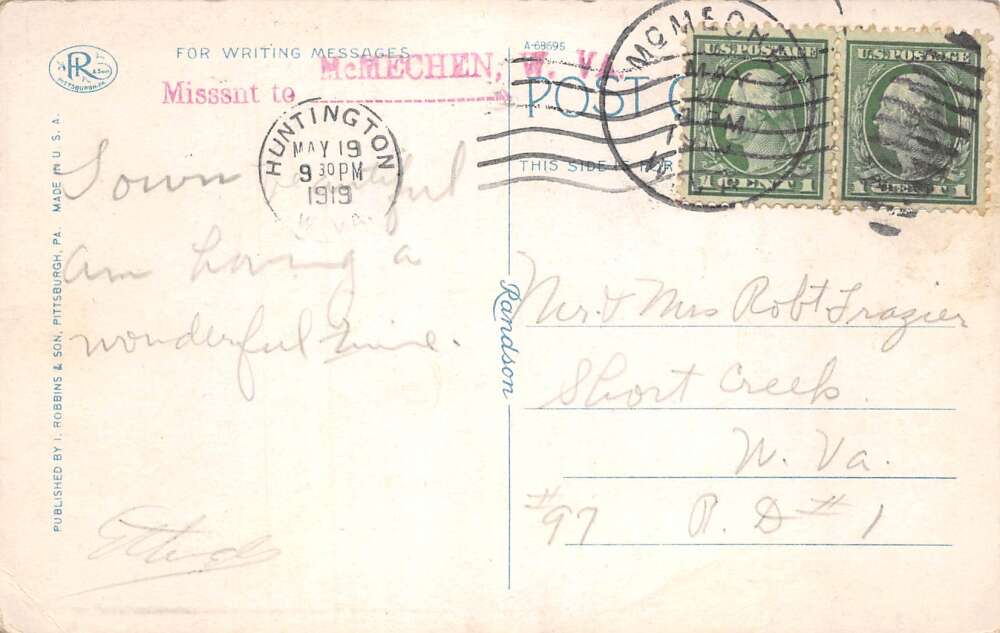 FOR WRITING MESSAGES
McMECHEN, W. VA.
Misssnt to
HUNTINGTON
MAY 19
9 30 PM
1919
W. VA.
Town beautiful
am having a
wonderful time.
PR
& Son
PITTSBURGH, PA.
PUBLISHED BY I. ROBBINS & SON, PITTSBURGH, PA. MADE IN U. S. A.
A-68695
POST C
THIS SIDE
Randson
McMECHEN
MAY
U.S. POSTAGE
1 CENT 1
U.S. POSTAGE
CENT 1
Mr. & Mrs Robt Frazier
Short Creek
W. Va.
#97 R. D # 1